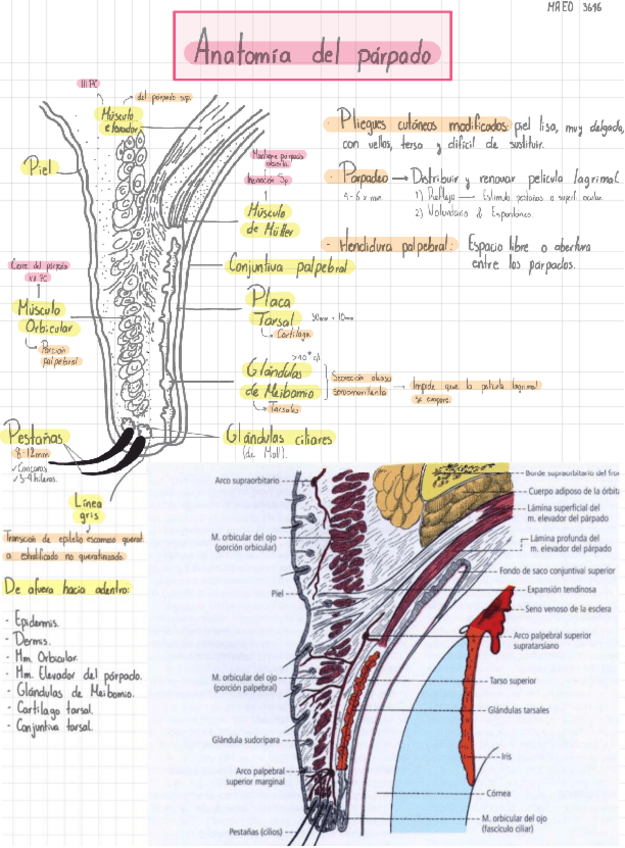 MAEO 3646
Anatomía del párpado
III PC
del párpado sup.
Músculo
elevador
Piel
Mantiene párpado
abierto.
Inervación Sp.
Músculo
de Müller
Conjuntiva palpebral
Cierre del párpado
VII PC
Músculo
Orbicular
Porción
palpebral
Placa
Tarsal
30mm × 10mm
Cartílago
Glándulas
de Meibomio
Tarsales
Secreción oleosa
Impide que la película lagrimal
se evapore.
Pestañas
8-12mm
✓ Cónicas
✓ 3-4 hileras.
Glándulas ciliares
(de Moll).
Línea
gris
Transición de epitelio escamoso querat.
a estratificado no queratinizado.
· Pliegues cutáneos modificados: piel lisa, muy delgada,
con vellos, tersa y difícil de sustituir.
· Parpadeo → Distribuir y renovar película lagrimal.
1) Refleja → Estímulo
2) Voluntario & Espontáneo.
- Hendidura palpebral: Espacio libre o abertura
entre los párpados.
De afuera hacia adentro:
- Epidermis.
- Dermis.
- Mm. Orbicular.
- Mm. Elevador del párpado.
- Glándulas de Meibomio.
- Cartílago tarsal.
- Conjuntiva tarsal.
Arco supraorbitario
M. orbicular del ojo
(porción orbicular)
Piel
M. orbicular del ojo
(porción palpebral)
Glándula sudorípara
Arco palpebral
superior marginal
Pestañas (cilios)
Borde supraorbitario del fron
Cuerpo adiposo de la órbita
Lámina superficial del
m. elevador del párpado
Lámina profunda del
m. elevador del párpado
Fondo de saco conjuntival superior
Expansión tendinosa
Seno venoso de la esclera
Arco palpebral superior
supratarsiano
Tarso superior
Glándulas tarsales
Iris
Córnea
M. orbicular del ojo
(fascículo ciliar)